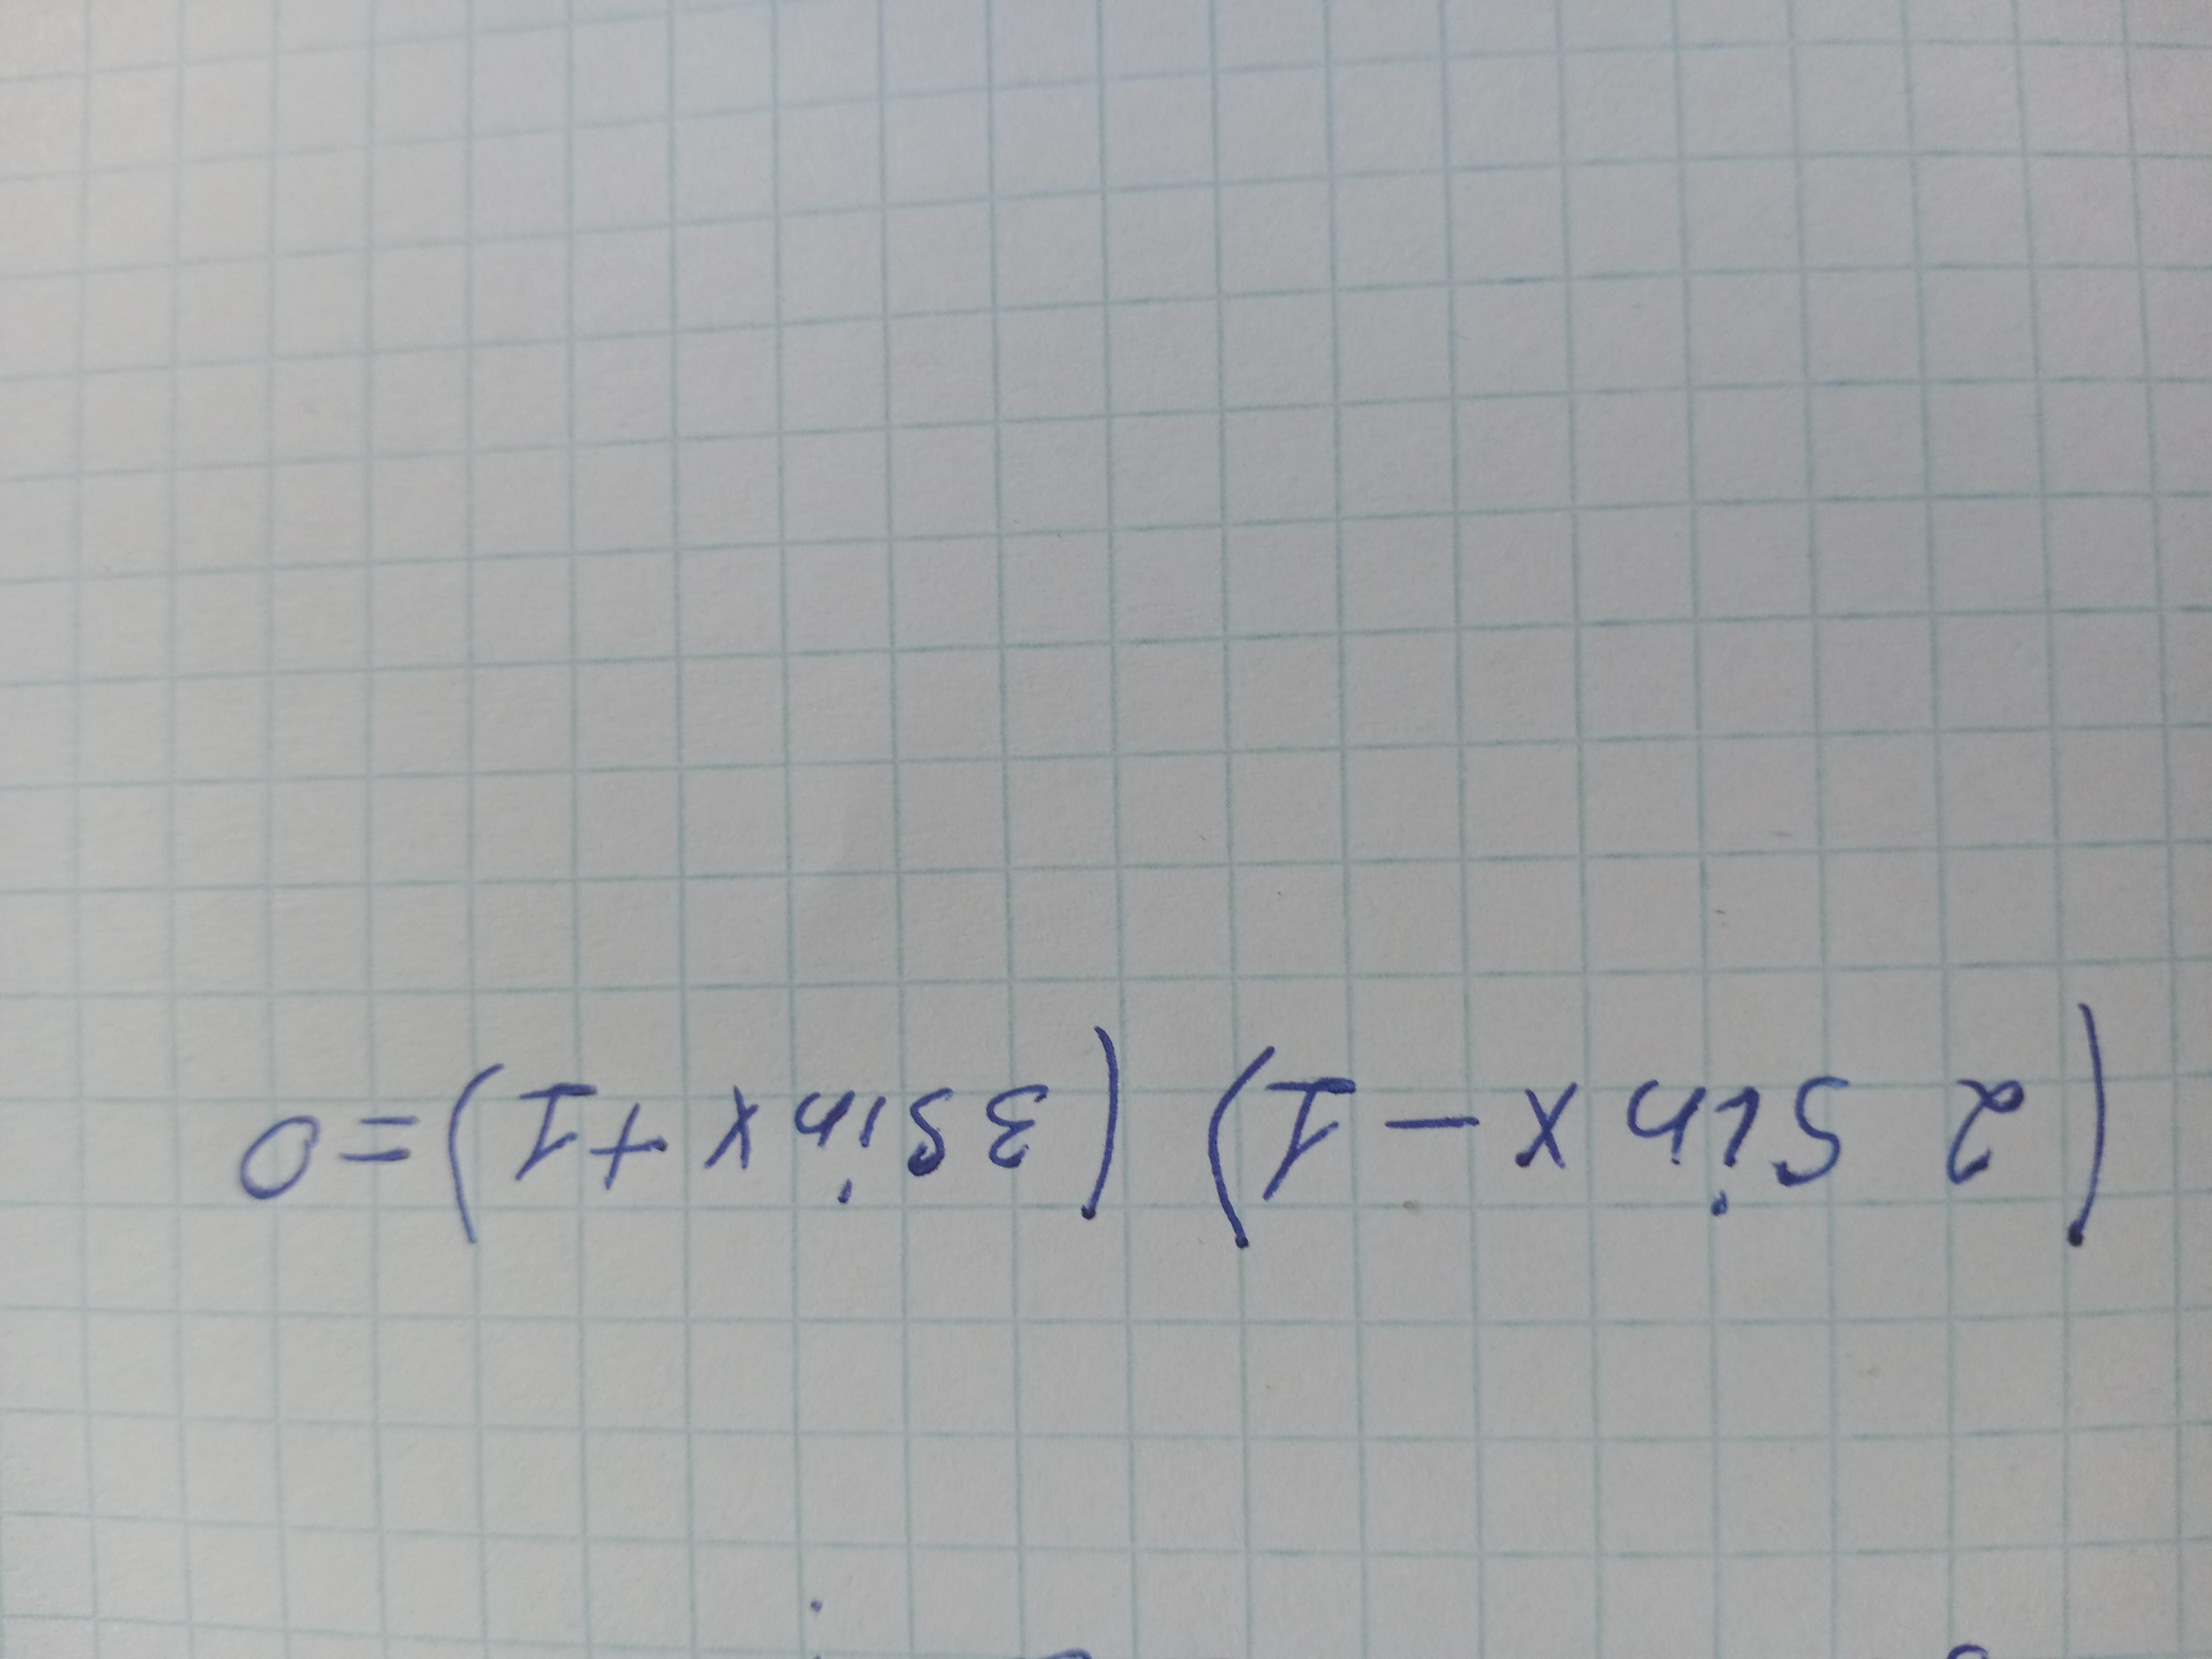 (2 sin x - 1) (3 sin x + 1) = 0